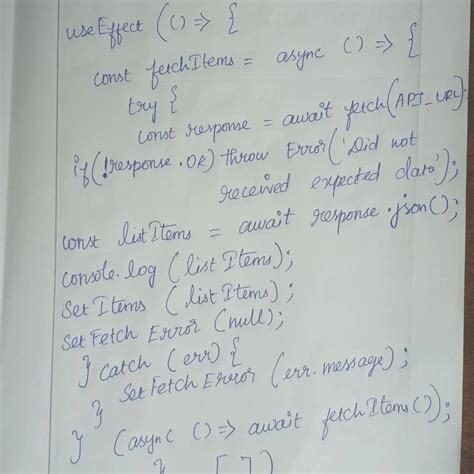 useEffect (() => {
const fetchItems = async () => {
try {
const response = await fetch(API_URL);
if(!response.OK) throw Error('Did not
received expected data');
const listItems = await response.json();
console.log (listItems);
Set Items (listItems);
Set Fetch Error (null);
} catch (err) {
Set Fetch Error (err.message);
}
} (async () => await fetchItems());
} [ ])